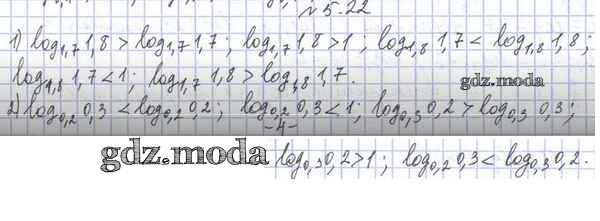 № 5.22
1) log₁,₇ 1,8 > log₁,₇ 1,7 ; log₁,₇ 1,8 > 1 ; log₁,₈ 1,7 < log₁,₈ 1,8 ;
log₁,₈ 1,7 < 1 ; log₁,₇ 1,8 > log₁,₈ 1,7 .
gdz.moda
2) log₀,₂ 0,3 < log₀,₂ 0,2 ; log₀,₂ 0,3 < 1 ; log₀,₃ 0,2 > log₀,₃ 0,3 ;
-4-
gdz.moda
log₀,₃ 0,2 > 1 ; log₀,₂ 0,3 < log₀,₃ 0,2 .